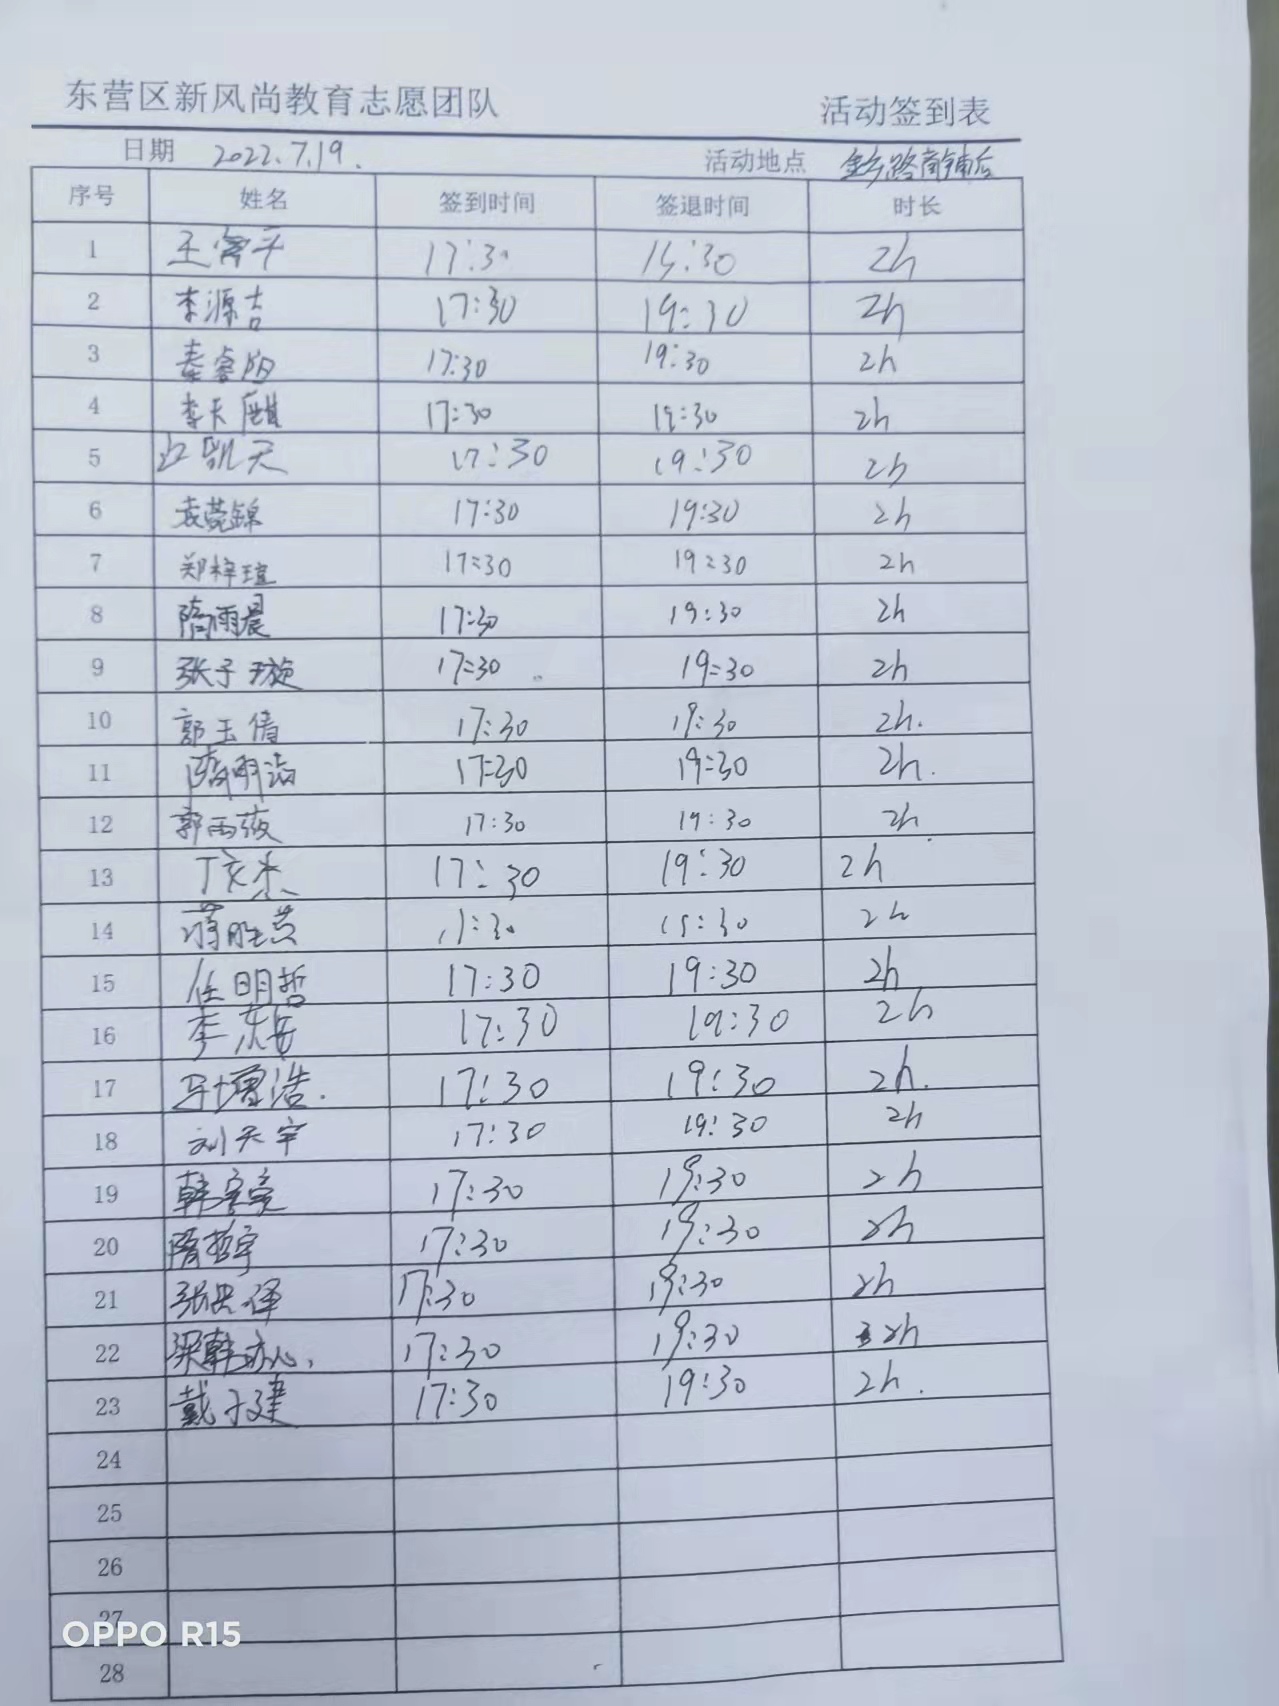 东营区新风尚教育志愿团队 活动签到表
日期 2022.7.19. 活动地点
序号 姓名 签到时间 签退时间 时长
1 17:30 19:30 2h
2 李源吉 17:30 19:30 2h
3 秦睿阳 17:30 19:30 2h
4 李天麒 17:30 19:30 2h
5 凯天 17:30 19:30 2h
6 袁菀锦 17:30 19:30 2h
7 郑梓瑄 17:30 19:30 2h
8 隋雨晨 17:30 19:30 2h
9 张子璇 17:30 19:30 2h
10 郭玉倩 17:30 19:30 2h.
11 隋明 17:30 19:30 2h.
12 郭雨薇 17:30 19:30 2h
13 丁亥杰 17:30 19:30 2h
14 蒋胜 17:30 19:30 2h
15 任明哲 17:30 19:30 2h
16 李 17:30 19:30 2h
17 马增浩. 17:30 19:30 2h.
18 刘天宇 17:30 19:30 2h
19 韩 17:30 19:30 2h
20 隋哲宇 17:30 19:30 2h
21 张 译 17:30 19:30 2h
22 梁韩 17:30 19:30 2h
23 戴子建 17:30 19:30 2h.
24
25
26
27
OPPO R15
28